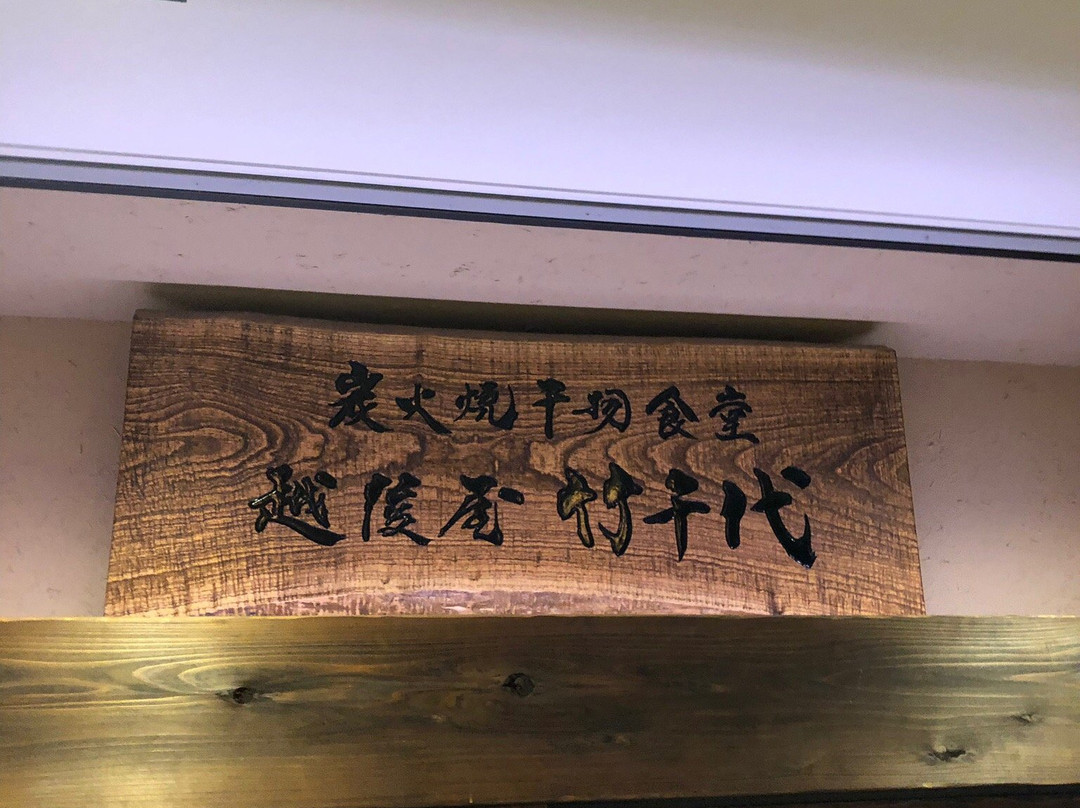 炭火焼干物食堂
越後屋 竹千代